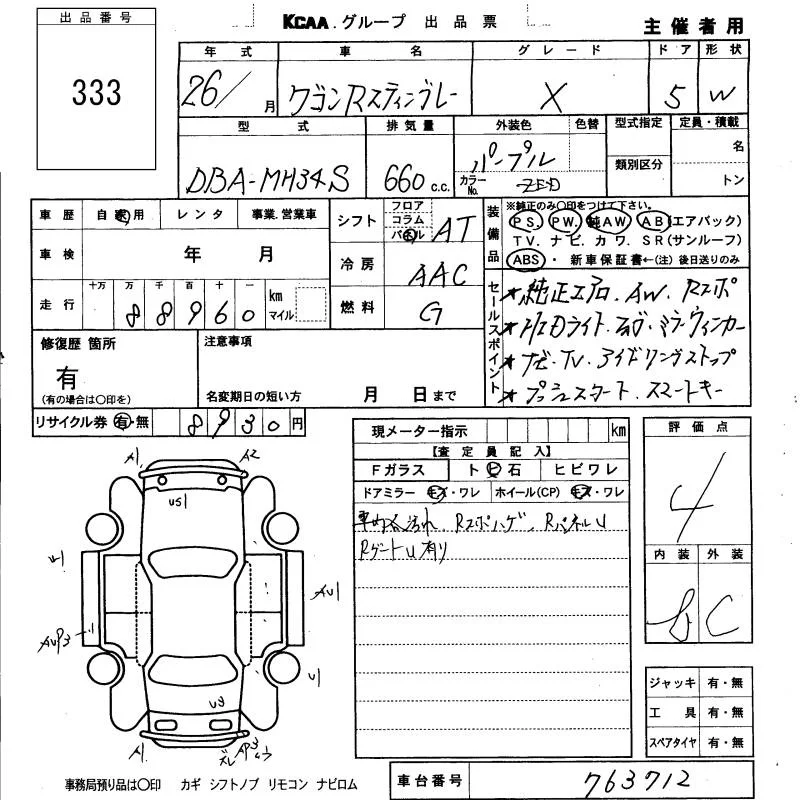 出品番号
333
KCAA.グループ 出品票
主催者用
年式 車名 グレード ドア 形状
26/ 月 ワゴンRスティングレー X 5 W
型式 排気量 外装色 色替 型式指定 定員・積載
DBA-MH34S 660 c.c. パープル
カラーNo. ZED
類別区分
名
トン
車歴 自家用 レンタ 事業.営業車
車検 年 月
走行 十万 万 千 百 十 一
88960 km マイル
シフト フロア コラム パネル AT
冷房 AAC
燃料 G
装備品 ※純正のみ○印をつけて下さい。
PS. PW. 純AW. AB(エアバック)
TV. ナビ. カワ. SR(サンルーフ)
ABS ・ 新車保証書←(注)後日送りのみ
セールスポイント
★純正エアロ.AW.Rスポ
★HIDライト.フォグ.ミラーウィンカー
★ナビ.TV.アイドリングストップ
★プッシュスタート.スマートキー
修復歴 箇所
有
(有の場合は○印を)
注意事項
名変期日の短い方 月 日まで
リサイクル券 有・無 8930円
現メーター指示 km
【査定員記入】
Fガラス ト ビ 石 ヒビワレ
ドアミラー キズ・ワレ ホイール(CP) キズ・ワレ
車内大汚れ、Rスポハゲ、RパネルU
RゲートU有り
評価点
4
内装 外装
B C
A1 A2
US1
U1
AU1
AUP3
U1
U3
A1
ズレ
AP3
ジャッキ 有・無
工具 有・無
スペアタイヤ 有・無
事務局預り品は○印 カギ シフトノブ リモコン ナビロム
車台番号 763712